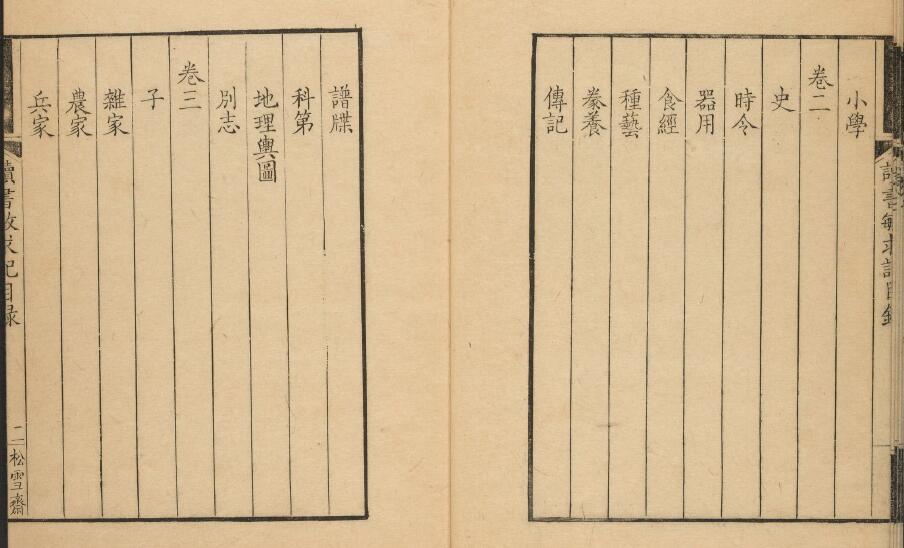 小學
卷二
史
時令
器用
食經
種藝
豢養
傳記
譜牒
科第
地理輿圖
別志
卷三
子
雜家
農家
兵家
讀書敏求記目錄
二
松雪齋